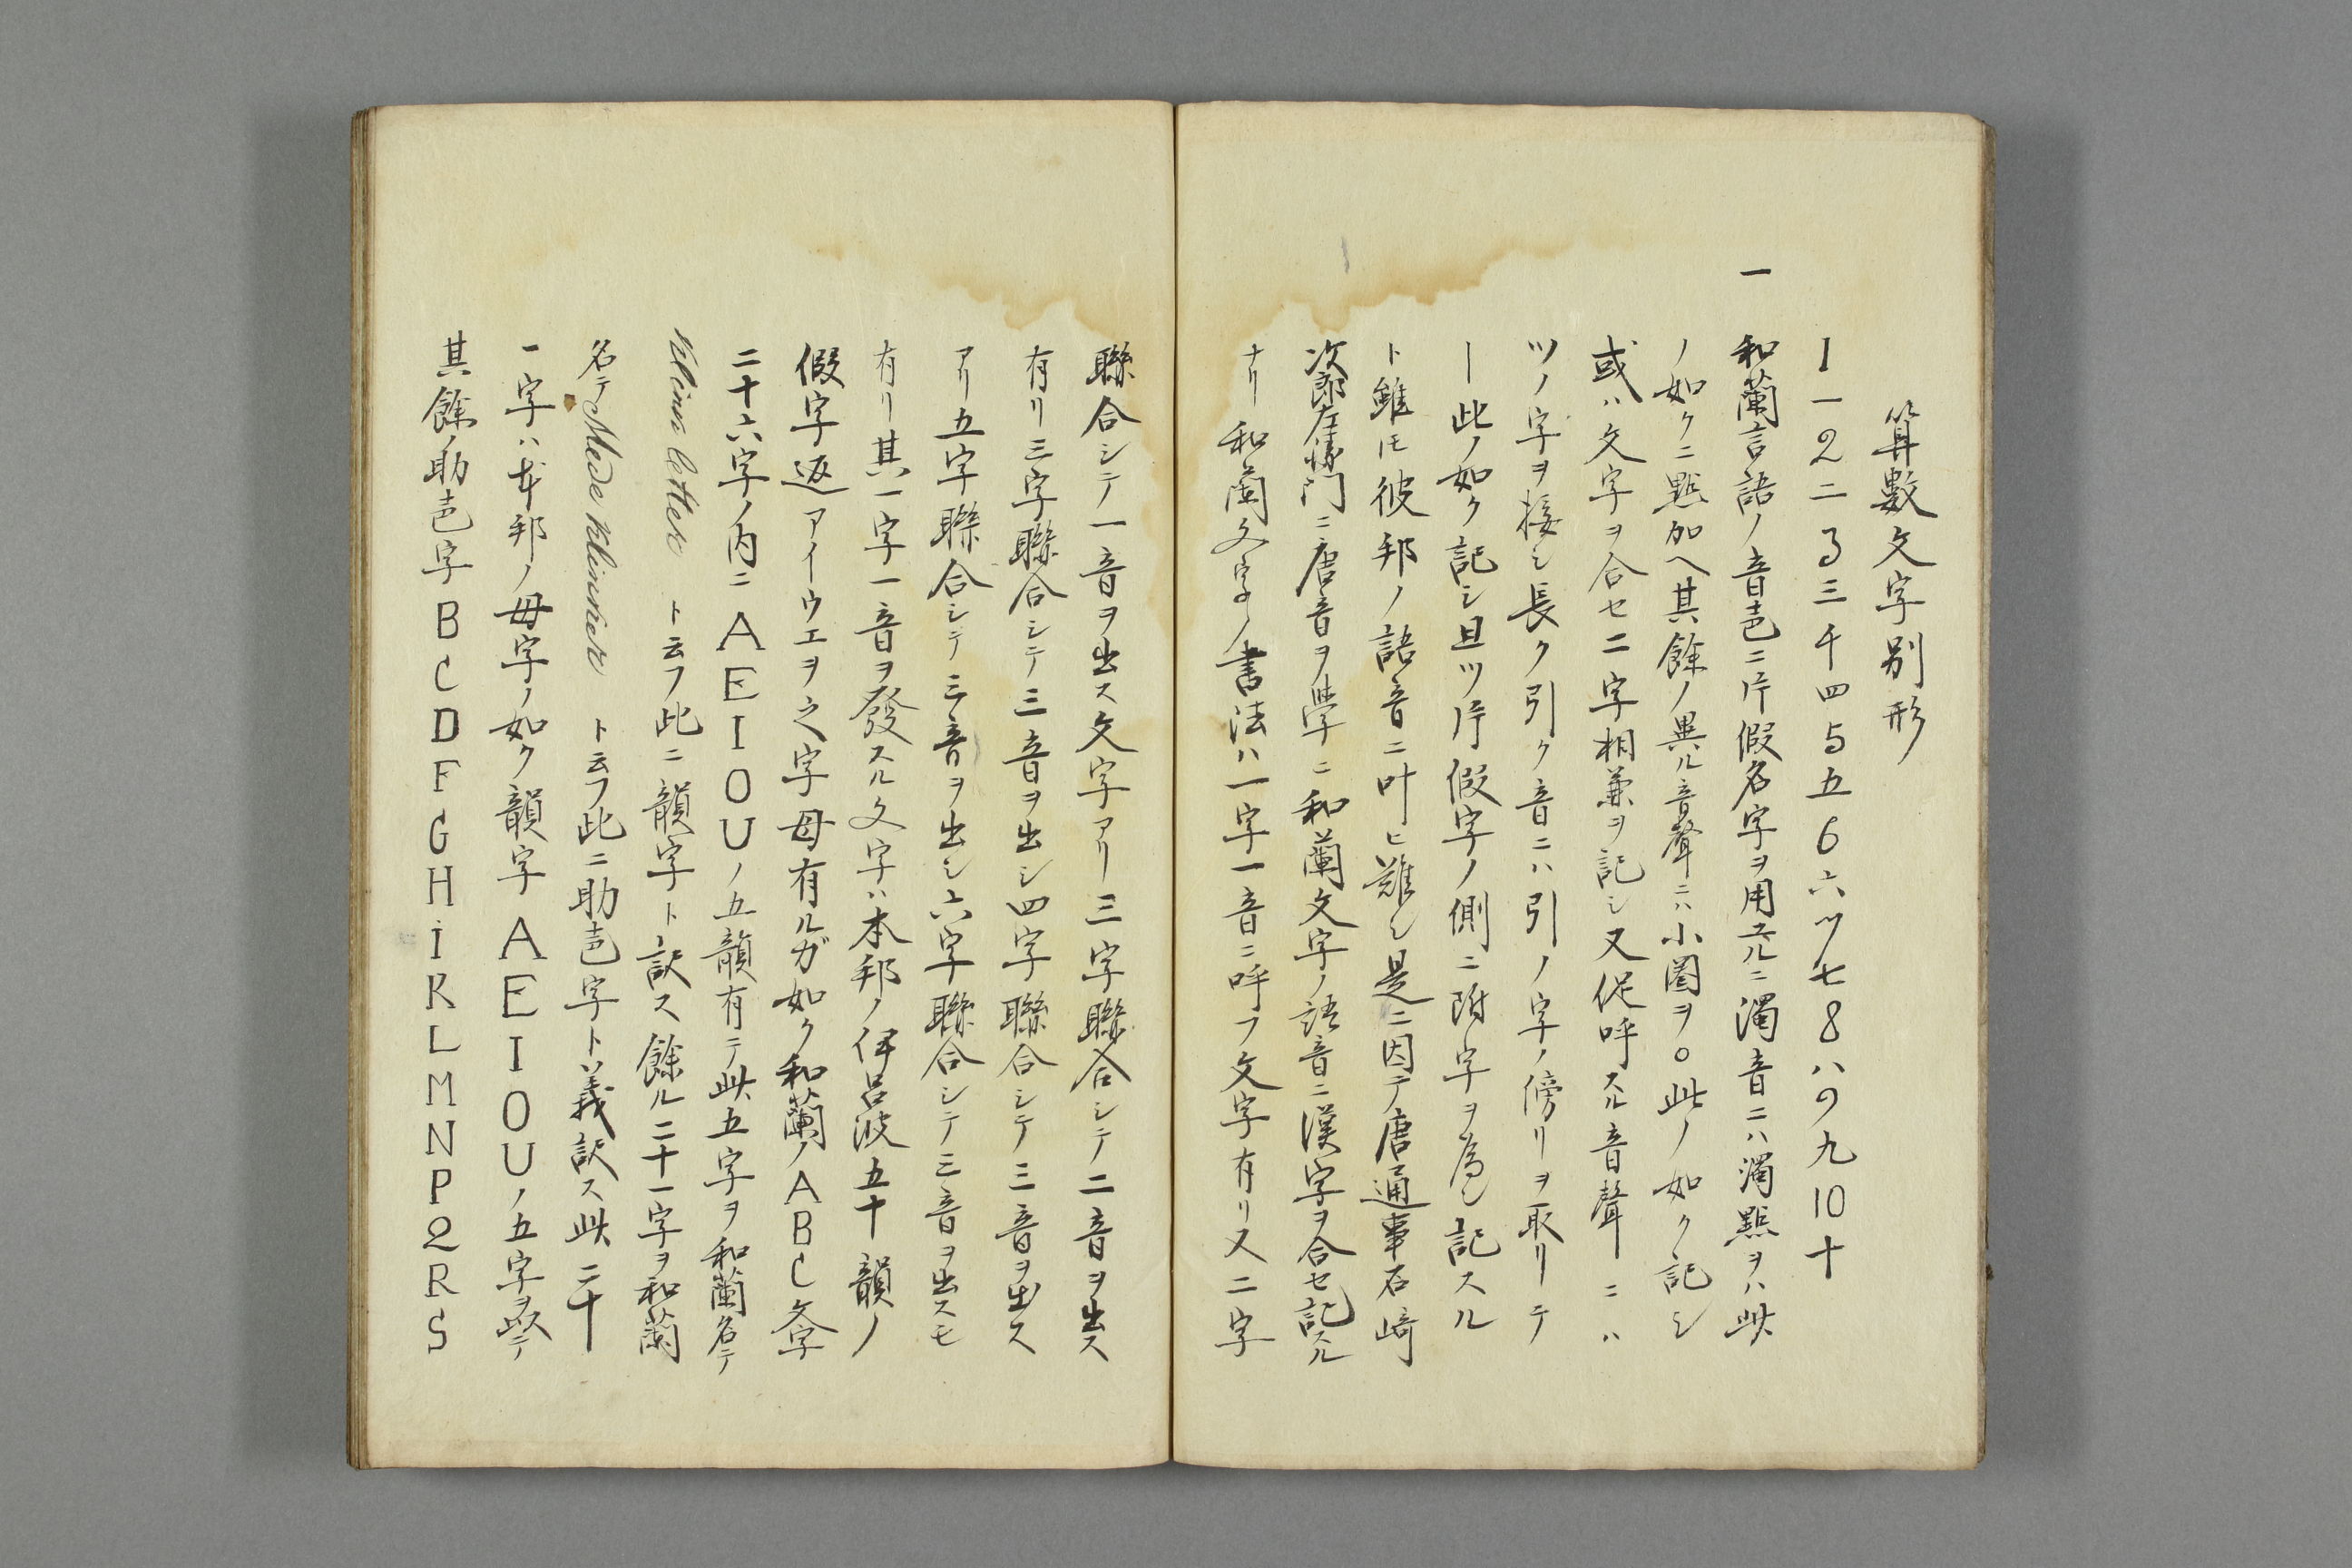 算數文字別形
1一2二3三4四5五6六7七8八9九10十
一和蘭言語ノ音声ニ片假名字ヲ用ユルニ濁音ニハ濁點ヲハ此
ノ如クニ點加ヘ其餘ノ異ル音聲ニハ小圏ヲ○此ノ如ク記シ
或ハ文字ヲ合セ二字相兼ヲ記シ又促呼スル音聲ニハ
ツノ字ヲ接シ長ク引ク音ニハ引ノ字ノ傍リヲ取リテ
ー此ノ如ク記シ且ツ片假字ノ側ニ附字ヲ為シ記スル
ト雖モ彼邦ノ語音ニ叶ヒ難シ是ニ因テ唐通事石﨑
次郎左衛門ニ唐音ヲ學ニ和蘭文字ノ語音ニ漢字ヲ合セ記スル
ナリ和蘭文字ノ書法ハ一字一音ニ呼フ文字有リ又二字
聯合シテ一音ヲ出ス文字アリ三字聯合シテ二音ヲ出ス
有リ三字聯合シテ三音ヲ出シ四字聯合シテ三音ヲ出ス
アリ五字聯合シテ三音ヲ出シ六字聯合シテ三音ヲ出スモ
有リ其一字一音ヲ發スル文字ハ本邦ノ伊呂波五十韻ノ
假字返アイウエヲ之字母有ルガ如ク和蘭ノABC文字
二十六字ノ内ニAEIOUノ五韻有テ此五字ヲ和蘭名テ
klinn letter ト云フ此ニ韻字ト訳ス餘ル二十一字ヲ和蘭
名テ Mede klinker ト云フ此ニ助声字ト義訳ス此二十
一字ハ本邦ノ母字ノ如ク韻字AEIOUノ五字ヲ以テ
其餘ノ助声字BCDFGHiKLMNPQRS